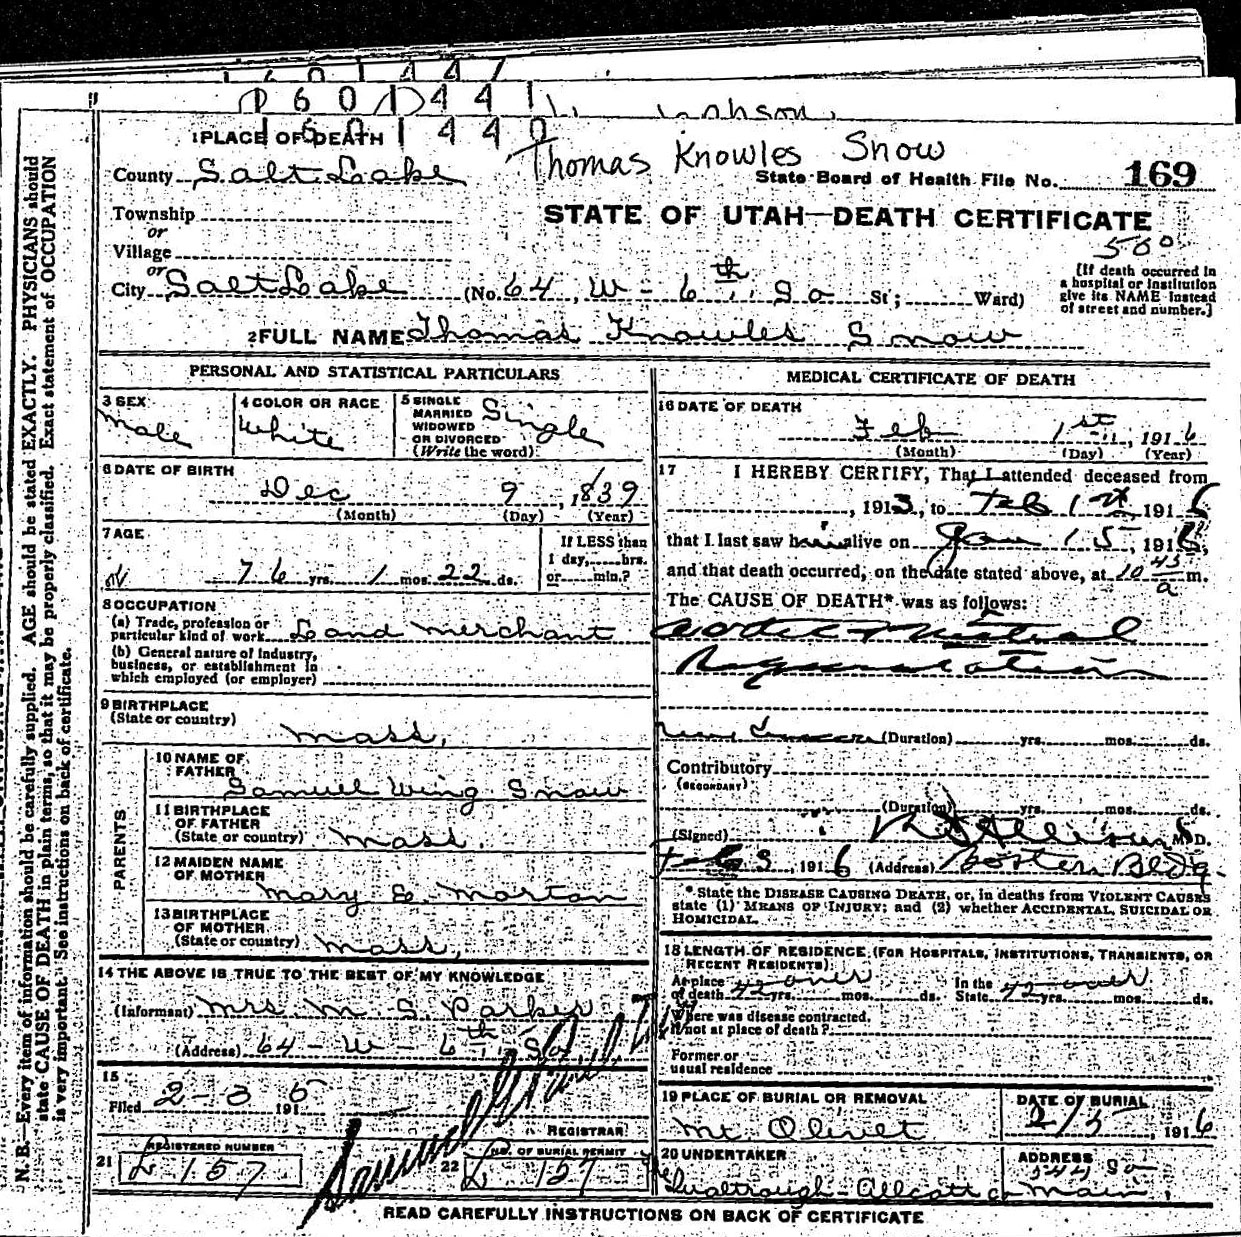 1601441
1601440
Thomas Knowles Snow
1 PLACE OF DEATH
County Salt Lake
State Board of Health File No. 169
Township
or
Village
or
City Salt Lake (No. 64, W - 6th. So St; Ward)
STATE OF UTAH—DEATH CERTIFICATE
500
[If death occurred in
a hospital or institution
give its NAME instead
of street and number.]
2 FULL NAME Thomas Knowles Snow
PERSONAL AND STATISTICAL PARTICULARS
3 SEX
Male
4 COLOR OR RACE
White
5 SINGLE
MARRIED
WIDOWED
OR DIVORCED
(Write the word)
Single
6 DATE OF BIRTH
Dec 9, 1839
(Month) (Day) (Year)
7 AGE
76 yrs. 1 mos. 22 ds.
If LESS than
1 day,......hrs.
or......min.?
8 OCCUPATION
(a) Trade, profession or
particular kind of work Land Merchant
(b) General nature of industry,
business, or establishment in
which employed (or employer)
9 BIRTHPLACE
(State or country)
Mass.
PARENTS
10 NAME OF
FATHER
Samuel Wing Snow
11 BIRTHPLACE
OF FATHER
(State or country) Mass.
12 MAIDEN NAME
OF MOTHER
Mary E. Morton
13 BIRTHPLACE
OF MOTHER
(State or country) Mass.
14 THE ABOVE IS TRUE TO THE BEST OF MY KNOWLEDGE
(Informant) Mrs M S Parker
(Address) 64 - W - 6th. So
15
Filed 2-3 1916
REGISTRAR
21 REGISTERED NUMBER
L 157
22 NO. OF BURIAL PERMIT
L 157
MEDICAL CERTIFICATE OF DEATH
16 DATE OF DEATH
Feb 1st, 1916
(Month) (Day) (Year)
17 I HEREBY CERTIFY, That I attended deceased from
, 1913, to Feb 1st 1916
that I last saw him alive on Jan 15, 1916,
and that death occurred, on the date stated above, at 10 45 a m.
The CAUSE OF DEATH* was as follows:
Aortic Mitral
Regurgitation
(Duration) yrs. mos. ds.
Contributory
(SECONDARY)
(Duration) yrs. mos. ds.
(Signed) M.D.
Feb 3, 1916 (Address) Boston Bldg.
* State the DISEASE CAUSING DEATH, or, in deaths from VIOLENT CAUSES
state (1) MEANS OF INJURY; and (2) whether ACCIDENTAL, SUICIDAL OR
HOMICIDAL.
18 LENGTH OF RESIDENCE (FOR HOSPITALS, INSTITUTIONS, TRANSIENTS, OR
RECENT RESIDENTS)
At place
of death 42 yrs. over mos. ds. In the
State 42 yrs. over mos. ds.
Where was disease contracted,
if not at place of death?
Former or
usual residence
19 PLACE OF BURIAL OR REMOVAL
Mt Olivet
DATE OF BURIAL
2/5, 1916
20 UNDERTAKER
ADDRESS
Main.
READ CAREFULLY INSTRUCTIONS ON BACK OF CERTIFICATE
N. B.—Every item of information should be carefully supplied. AGE should be stated EXACTLY. PHYSICIANS should
state CAUSE OF DEATH in plain terms, so that it may be properly classified. Exact statement of OCCUPATION
is very important. See instructions on back of certificate.